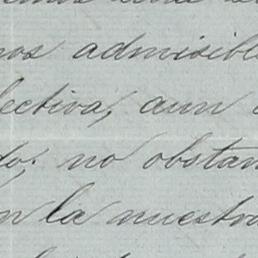 nos admisible
lectiva, aun
do; no obstan
n la nuestra